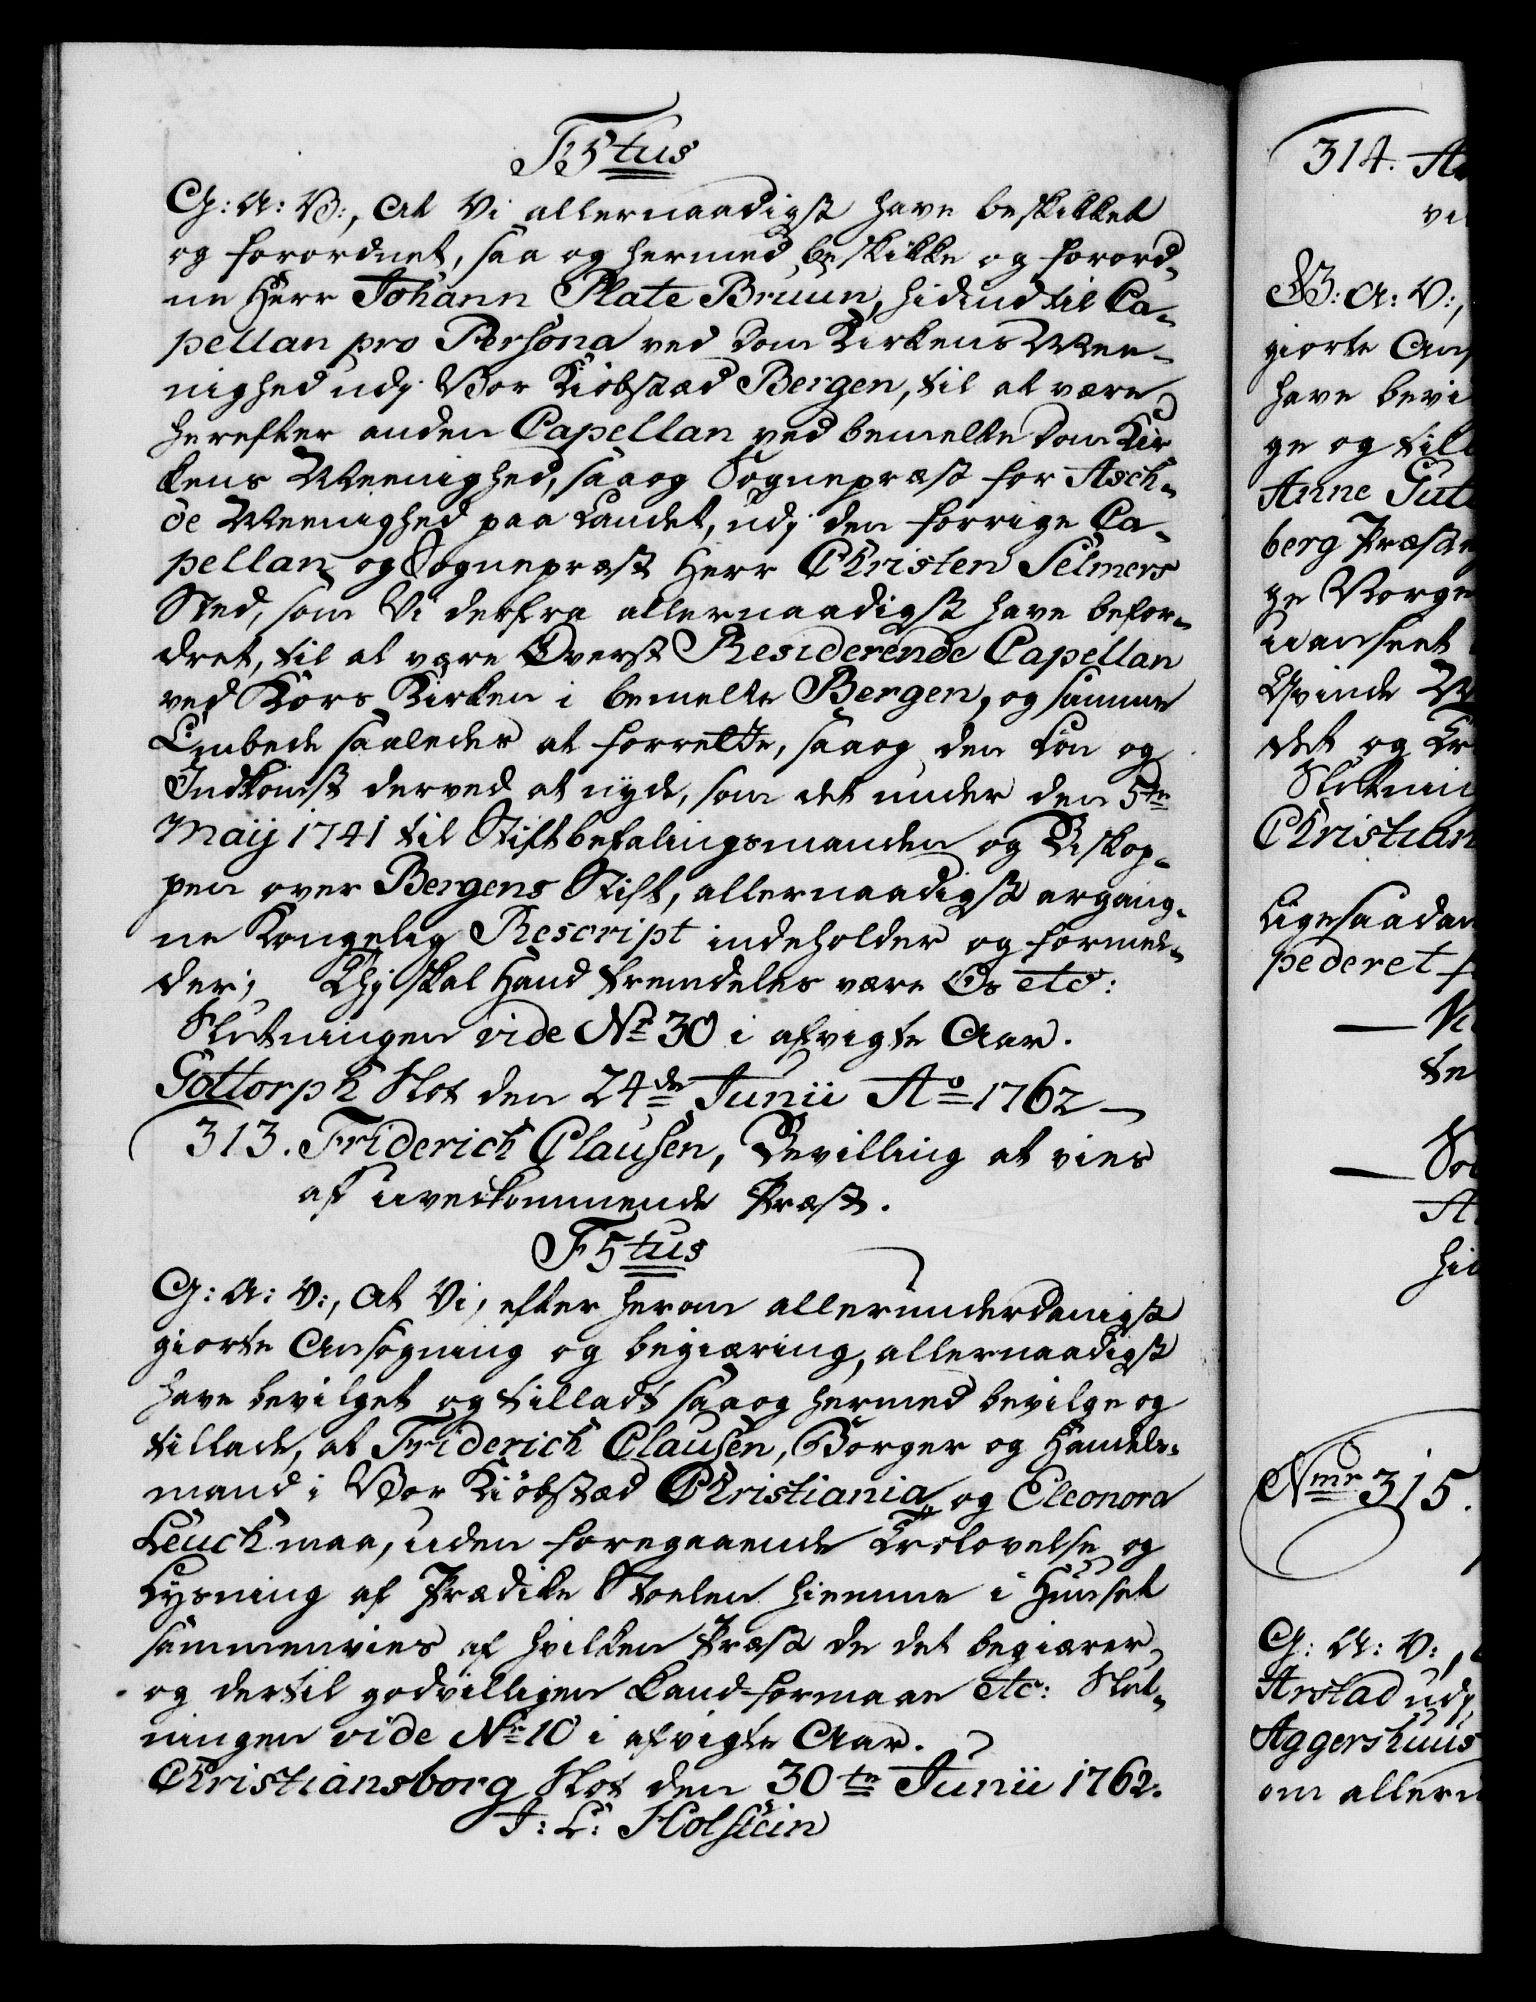 F5tus
G: A: V:, At Vi allernaadigst have beskikket
og forordnet, saa og hermed beskikke og forord-
ne Herr Johann Plate Bruun, hidindtil Ca-
pellan pro Persona ved Dom Kirkens Mee-
nighed udj Vor Kiöbstæd Bergen, til at være
herefter anden Capellan ved bemelte Dom Kir
kens Meenighed, saa og Sognepræst for Asch-
öe Meenighed paa Landet, udj den forrige Ca-
pellan og Sognepræst Herr Christen Selmers
Sted, som Vi derfra allernaadigst have befor-
dret, til at være Överst Residerende Capellan
ved Kors Kirken i bemelte Bergen, og samme
Embede saaledes at forrette, saa og den Lön og
Indkomst derved at nyde, som det under den 5te
Maij 1741 til Stiftbefalingsmanden og Biskop-
pen over Bergens Stift, allernaadigst ergang-
ne Kongelig Rescript indeholder og formel-
der; Thj skal Hand fremdeles være Os etc:
Slutningen vide No 30 i afvigte Aar.
Gottorph Slot den 24de Junii Ao 1762
313. Friderich Clausen, Bevilling at vies
af uvedkommende Præst.
F5tus
G: A: V:, At Vi, efter herom allerunderdanigst
giorte Ansögning og begiæring, allernaadigst
have bevilget og tilladt saa og hermed bevilge og
tillade, at Friderich Clausen, Borger og Handels-
mand i Vor Kiöbstæd Christiania, og Eleonora
Leuch maa, uden foregaaende Trolovelse og
Lysning af Prædike Stoelen hiemme i Huuset
sammenvies af hvilken Præst de det begiærer,
og dertil godvilligen kand formaae etc: Slut-
ningen vide No 10 i afvigte Aar.
Christiansborg Slot den 30te Junii 1762.
J: L: Holstein
314.
G: A: V:,
giorte Ans
have bevi
ge og till
Anne Gut
berg Præste
ge Norge
uanseet
Qvinde
det og
Slutnin
Christian
Ligesaadan
pederet
Nmr 315.
G: A: V:,
Arstad udj
Aggershuus
om allern